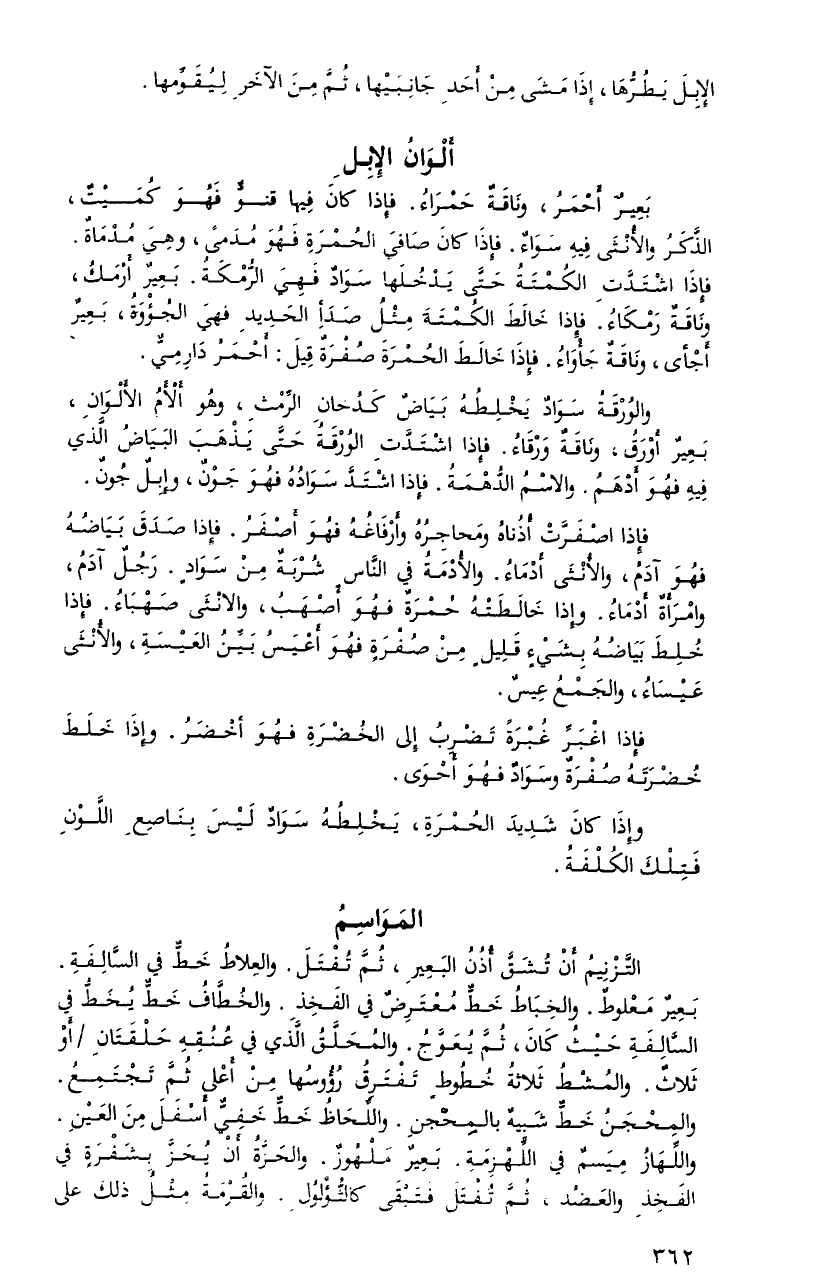 الإِبِلَ يَطُرُّهَا ، إِذَا مَشَى مِنْ أَحَدِ جَانِبَيْها ، ثُمَّ مِنَ الآخَرِ لِيُقَوِّمها .
أَلْوَانُ الإِبِلِ
بَعِيرٌ أَحْمَرُ ، ونَاقَةٌ حَمْرَاءُ . فإِذا كانَ فِيها قنوٌّ فَهُوَ كُمَيْتٌ ،
الذَّكَرُ والأُنْثَى فِيهِ سَوَاءٌ . فإِذَا كانَ صَافيَ الحُمْرَةِ فَهُوَ مُدَمىً ، وهِيَ مُدْمَاةٌ .
فإِذَا اشْتَدَّتِ الكُمْتَةُ حَتَّى يَدْخُلَها سَوَادٌ فَهِيَ الرُّمْكَةُ . بَعِيرٌ أَرْمَكُ ،
ونَاقَةٌ رَمْكَاءُ . فإِذا خالَطَ الكُمْتَةَ مِثْلُ صَدَأِ الحَدِيدِ فهِيَ الجُؤْوَةُ ، بَعِيرٌ
أَجْأى ، ونَاقَةٌ جَأْوَاءُ . فإِذَا خَالَطَ الحُمْرَةَ صُفْرَةٌ قِيلَ : أَحْمَرُ دَارِمِيٌّ .
والوُرْقَةُ سَوَادٌ يَخْلِطُهُ بَيَاضٌ كَدُخانِ الرِّمْثِ ، وهُو أَلْأَمُ الأَلْوَانِ ،
بَعِيرٌ أَوْرَقُ ، ونَاقَةٌ وَرْقَاءُ . فإِذا اشْتَدَّتِ الوُرْقَةُ حَتَّى يَذْهَبَ البَيَاضُ الَّذي
فِيهِ فهُوَ أَدْهَمُ . والاسْمُ الدُّهْمَةُ . فإِذا اشْتَدَّ سَوَادُهُ فهُوَ جَوْنٌ ، وإِبِلٌ جُونٌ .
فإِذا اصْفَرَّتْ أُذُناهُ ومَحاجِرُهُ وأَرْفاغُهُ فهُوَ أَصْفَرُ . فإِذا صَدَقَ بَيَاضُهُ
فهُوَ آدَمُ ، والأُنْثَى أَدْمَاءُ . والأُدْمَةُ في النَّاسِ شُرْبَةٌ مِنْ سَوَادٍ . رَجُلٌ آدَمُ ،
وامْرَأَةٌ أَدْمَاءُ . وإِذا خَالَطَتْهُ حُمْرَةٌ فهُوَ أَصْهَبُ ، والانْثَى صَهْبَاءُ . فإِذا
خُلِطَ بَيَاضُهُ بِشَيْءٍ قَلِيلٍ مِنْ صُفْرَةٍ فهُوَ أَعْيَسُ بَيِّنُ العَيْسَةِ ، والأُنْثَى
عَيْسَاءُ ، والجَمْعُ عِيسٌ .
فإِذا اغْبَرَّ غُبْرَةً تَضْرِبُ إِلى الخُضْرَةِ فهُوَ أَخْضَرُ . وإِذَا خَلَطَ
خُضْرَتَهُ صُفْرَةٌ وسَوَادٌ فهُوَ أَحْوَى .
وإِذَا كانَ شَدِيدَ الحُمْرَةِ ، يَخْلِطُهُ سَوَادٌ لَيْسَ بِنَاصِعِ اللَّوْنِ
فَتِلْكَ الكُلْفَةُ .
المَوَاسِمُ
التَّزْنِيمُ أَنْ تُشَقَّ أُذُنُ البَعِيرِ ، ثُمَّ تُفْتَلَ . والعِلاطُ خَطٌّ في السَّالِفَةِ .
بَعِيرٌ مَعْلوطٌ . والخِبَاطُ خَطٌّ مُعْتَرِضٌ في الفَخِذِ . والخُطَّافُ خَطٌّ يُخَطُّ في
السَّالِفَةِ حَيْثُ كَانَ ، ثُمَّ يُعَوَّجُ . والمُحَلَّقُ الَّذي في عُنُقِهِ حَلْقَتَانِ / أَوْ
ثَلاثٌ . والمُشْطُ ثَلاثَةُ خُطُوطٍ تَفْتَرِقُ رُؤُوسُها مِنْ أَعْلى ثُمَّ تَجْتَمِعُ .
والمِحْجَنُ خَطٌّ شَبِيهٌ بالمِحْجَنِ . واللَّحَاظُ خَطٌّ خَفِيٌّ أَسْفَلَ مِنَ العَيْنِ .
واللِّهَازُ مِيَسمٌ في اللِّهْزِمَةِ . بَعِيرٌ مَلْهُوزٌ . والحَزَّةُ أَنْ يُحَزَّ بِشَفْرَةٍ في
الفَخِذِ والعَضُدِ ، ثُمَّ تُفْتَلَ فَتَبْقَى كالثُّؤْلُولِ . والقُرْمَةُ مِثْلُ ذلكَ على
٣٦٢